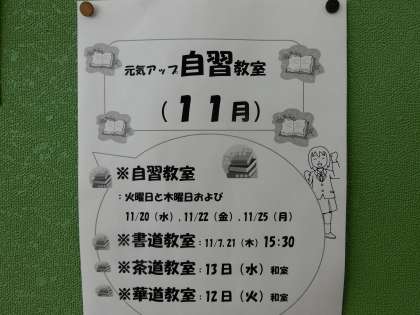 元気アップ自習教室
(11月)
※自習教室
:火曜日と木曜日および
11/20(水),11/22(金),11/25(月)
※書道教室:11/7.21(木)15:30
※茶道教室:13日(水)和室
※華道教室:12日(火)和室